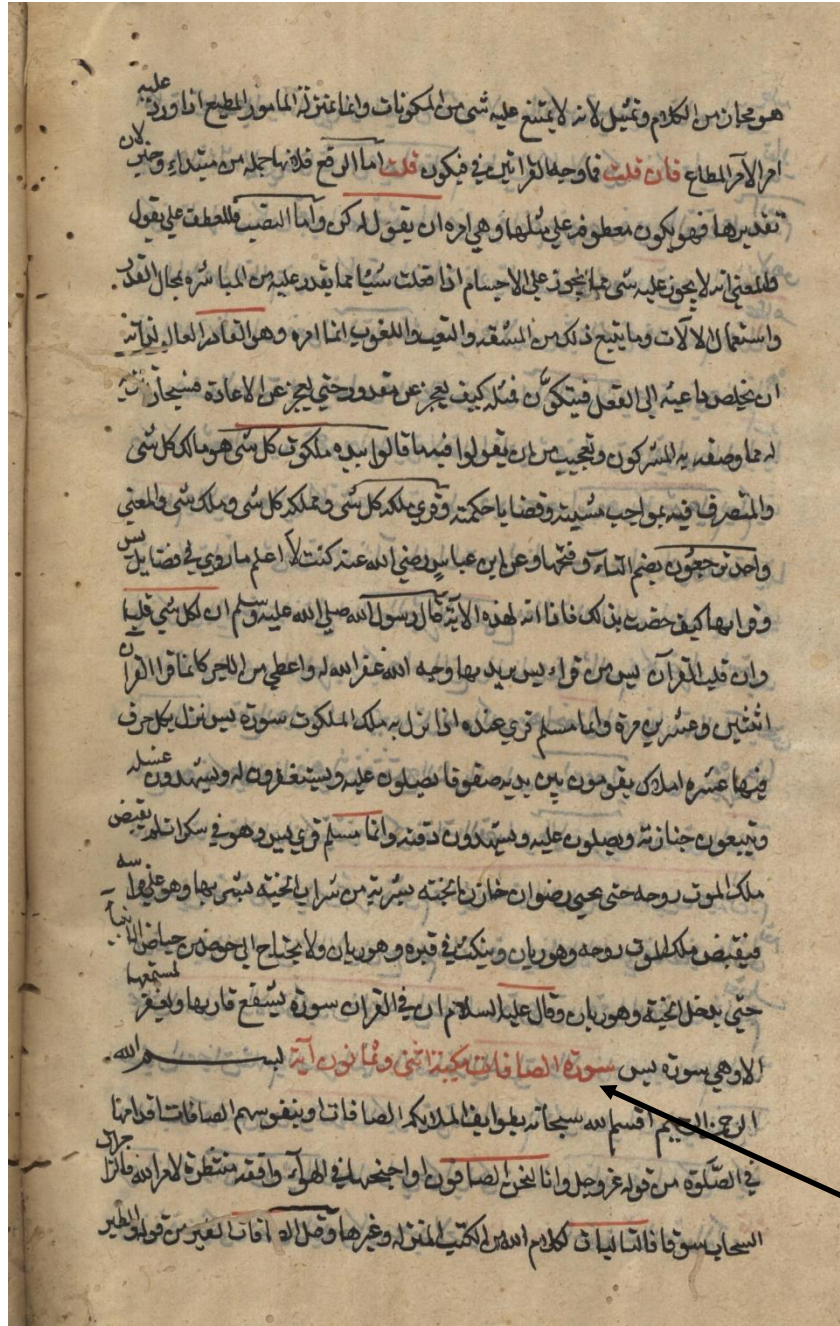 هو مجاز من الكلام وتمثيل لانه لا يمتنع عليه شى من المكونات وانما بمنزلة المامور المطيع اذا ورد عليه
امر الآمر المطاع فان قلت فما وجه القراتين في فيكون قلت اما الرفع فلانها جمله من مبتداء وخبر لان
تقديرها فهو يكون معطوفه على مثلها وهي امره ان يقول له كن وأما النصب فللعطف على يقول
والمعني انه لا يجوز عليه شى مما يجوز على الاجسام اذا فعلت شيًا مما يقدر عليه من المباشره بمحال القدر
واستعمال الالآت وما يتبع ذلك من المشقه والتعب واللغوب انما امره وهو القادر العالم لذاته
ان يخلص داعيه الى الفعل فيتكوَّن فمثله كيف يعجز عن مقدور حتي يعجز عن الاعادة فسبحان تنزيه
له مما وصفه به المشركون وتعجيب من ان يقولوا فيه ما قالوا بيده ملكوت كل شى هو مالك كل شى
والمتصرف فيه بمواجب مشيته وقضايا حكمته وقري ملكه كل شى ومملكه كل شى وملك شى والمعني
واحد ترجعون بضم التاء وفتحها وعن ابن عباس رضي الله عنه كنت لا اعلم ما روي في فضايل يس
وقراتها كيف خصت بذلك فاذا انه لهذه الاية قال رسول الله صلى الله عليه وسلم ان لكل شي قلبا
وان قلب القرآن يس من قراء يس يريد بها وجه الله غفر الله له واعطي من الاجر كانما قرا القرآن
اثنتين وعشرين مرة وايما مسلم قري عنده اذا نزل به ملك الملكوت سورة يس نزل بكل حرف
فيها عشره املاك يقومون بين يديه صفوفا يصلون عليه ويستغفرون له ويشهدون غسله
ويتبعون جنازته ويصلون عليه ويشهدون دفنه وايما مسلم قري يس وهو في سكرات لم يقبض
ملك الموت روحه حتى يحيى رضوان خازن الجنه بشربة من شراب الجنه يشربها وهو على فراسه
فيقبض ملك الموت روحه وهو ريان ويمكث في قبره وهو ريان ولا يحتاج الى حوض من حياض الانبيا
حتي يدخل الجنة وهو ريان وقال عليه السلام ان في القران سورة يشفع قاريها ويغفر لمستمعها
الا وهي سورة يس سورة الصافات مكية اثنى وثمانون آية بسم الله
الرحمن الرحيم اقسم الله سبحانه بطوايف الملايكه الصافات او بنفوسهم الصافات اقدامها
في الصلوة من قوله عز وجل وانا لنحن الصافون او اجنحتها في الهوآء واقفه منتظرة لامر الله فالزاجرات
السحاب سوقا فالتاليات لكلام الله من الكتب المنزله وغيرها وقيل الصافات الطير من قوله والطير